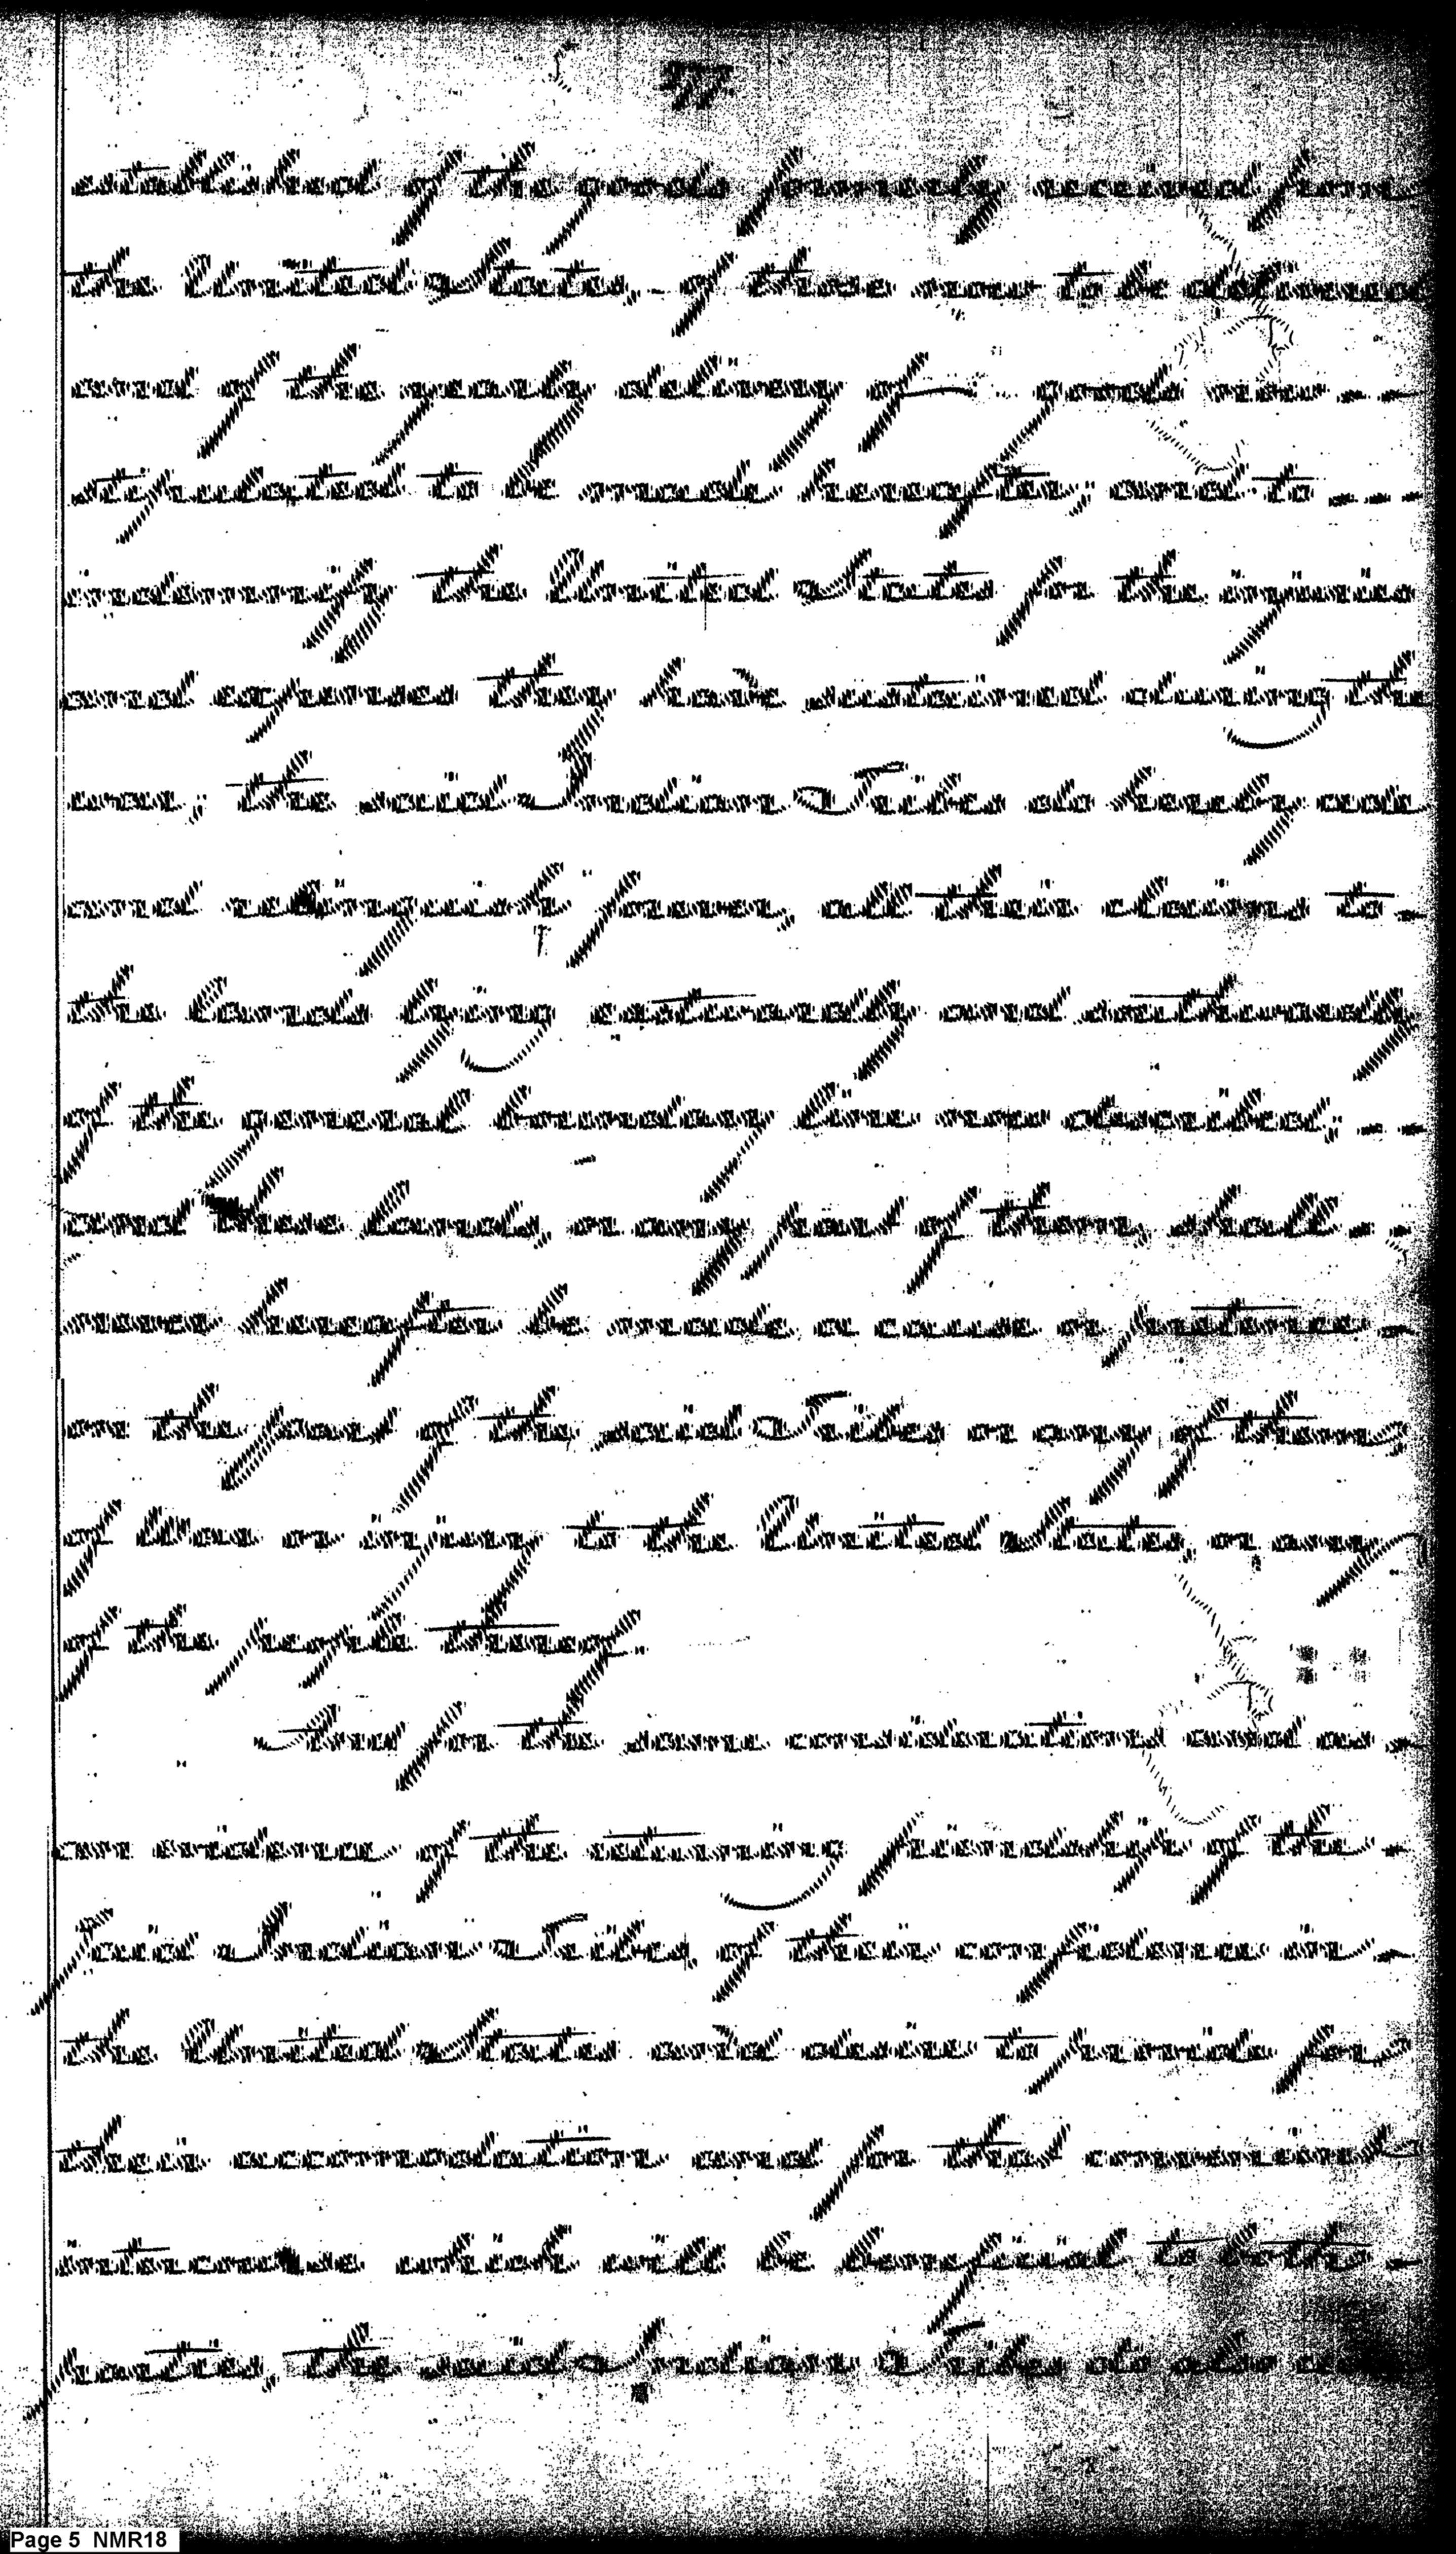 established, of the goods formerly received from
the United States, - of those now to be delivered
and of the yearly delivery of goods now --
stipulated to be made hereafter; and to ---
indemnify the United States for the injuries
and expenses they have sustained during the
war; the said Indian Tribes do hereby cede
and relinquish forever, all their claims to -
the Lands lying eastwardly and southwardly
of the general boundary line now described; --
and these Lands, or any part of them, shall --
never hereafter be made a cause or pretence -
on the part of the said Tribes or any of them
of War or injury to the United States, or any
of the people thereof.
And for the same considerations and as -
an evidence of the returning friendship of the -
said Indian Tribes, of their confidence in -
the United States and desire to provide for
their accommodation and for that convenient
intercourse which will be beneficial to both -
parties, the said Indian Tribes do also cede
Page 5 NMR18